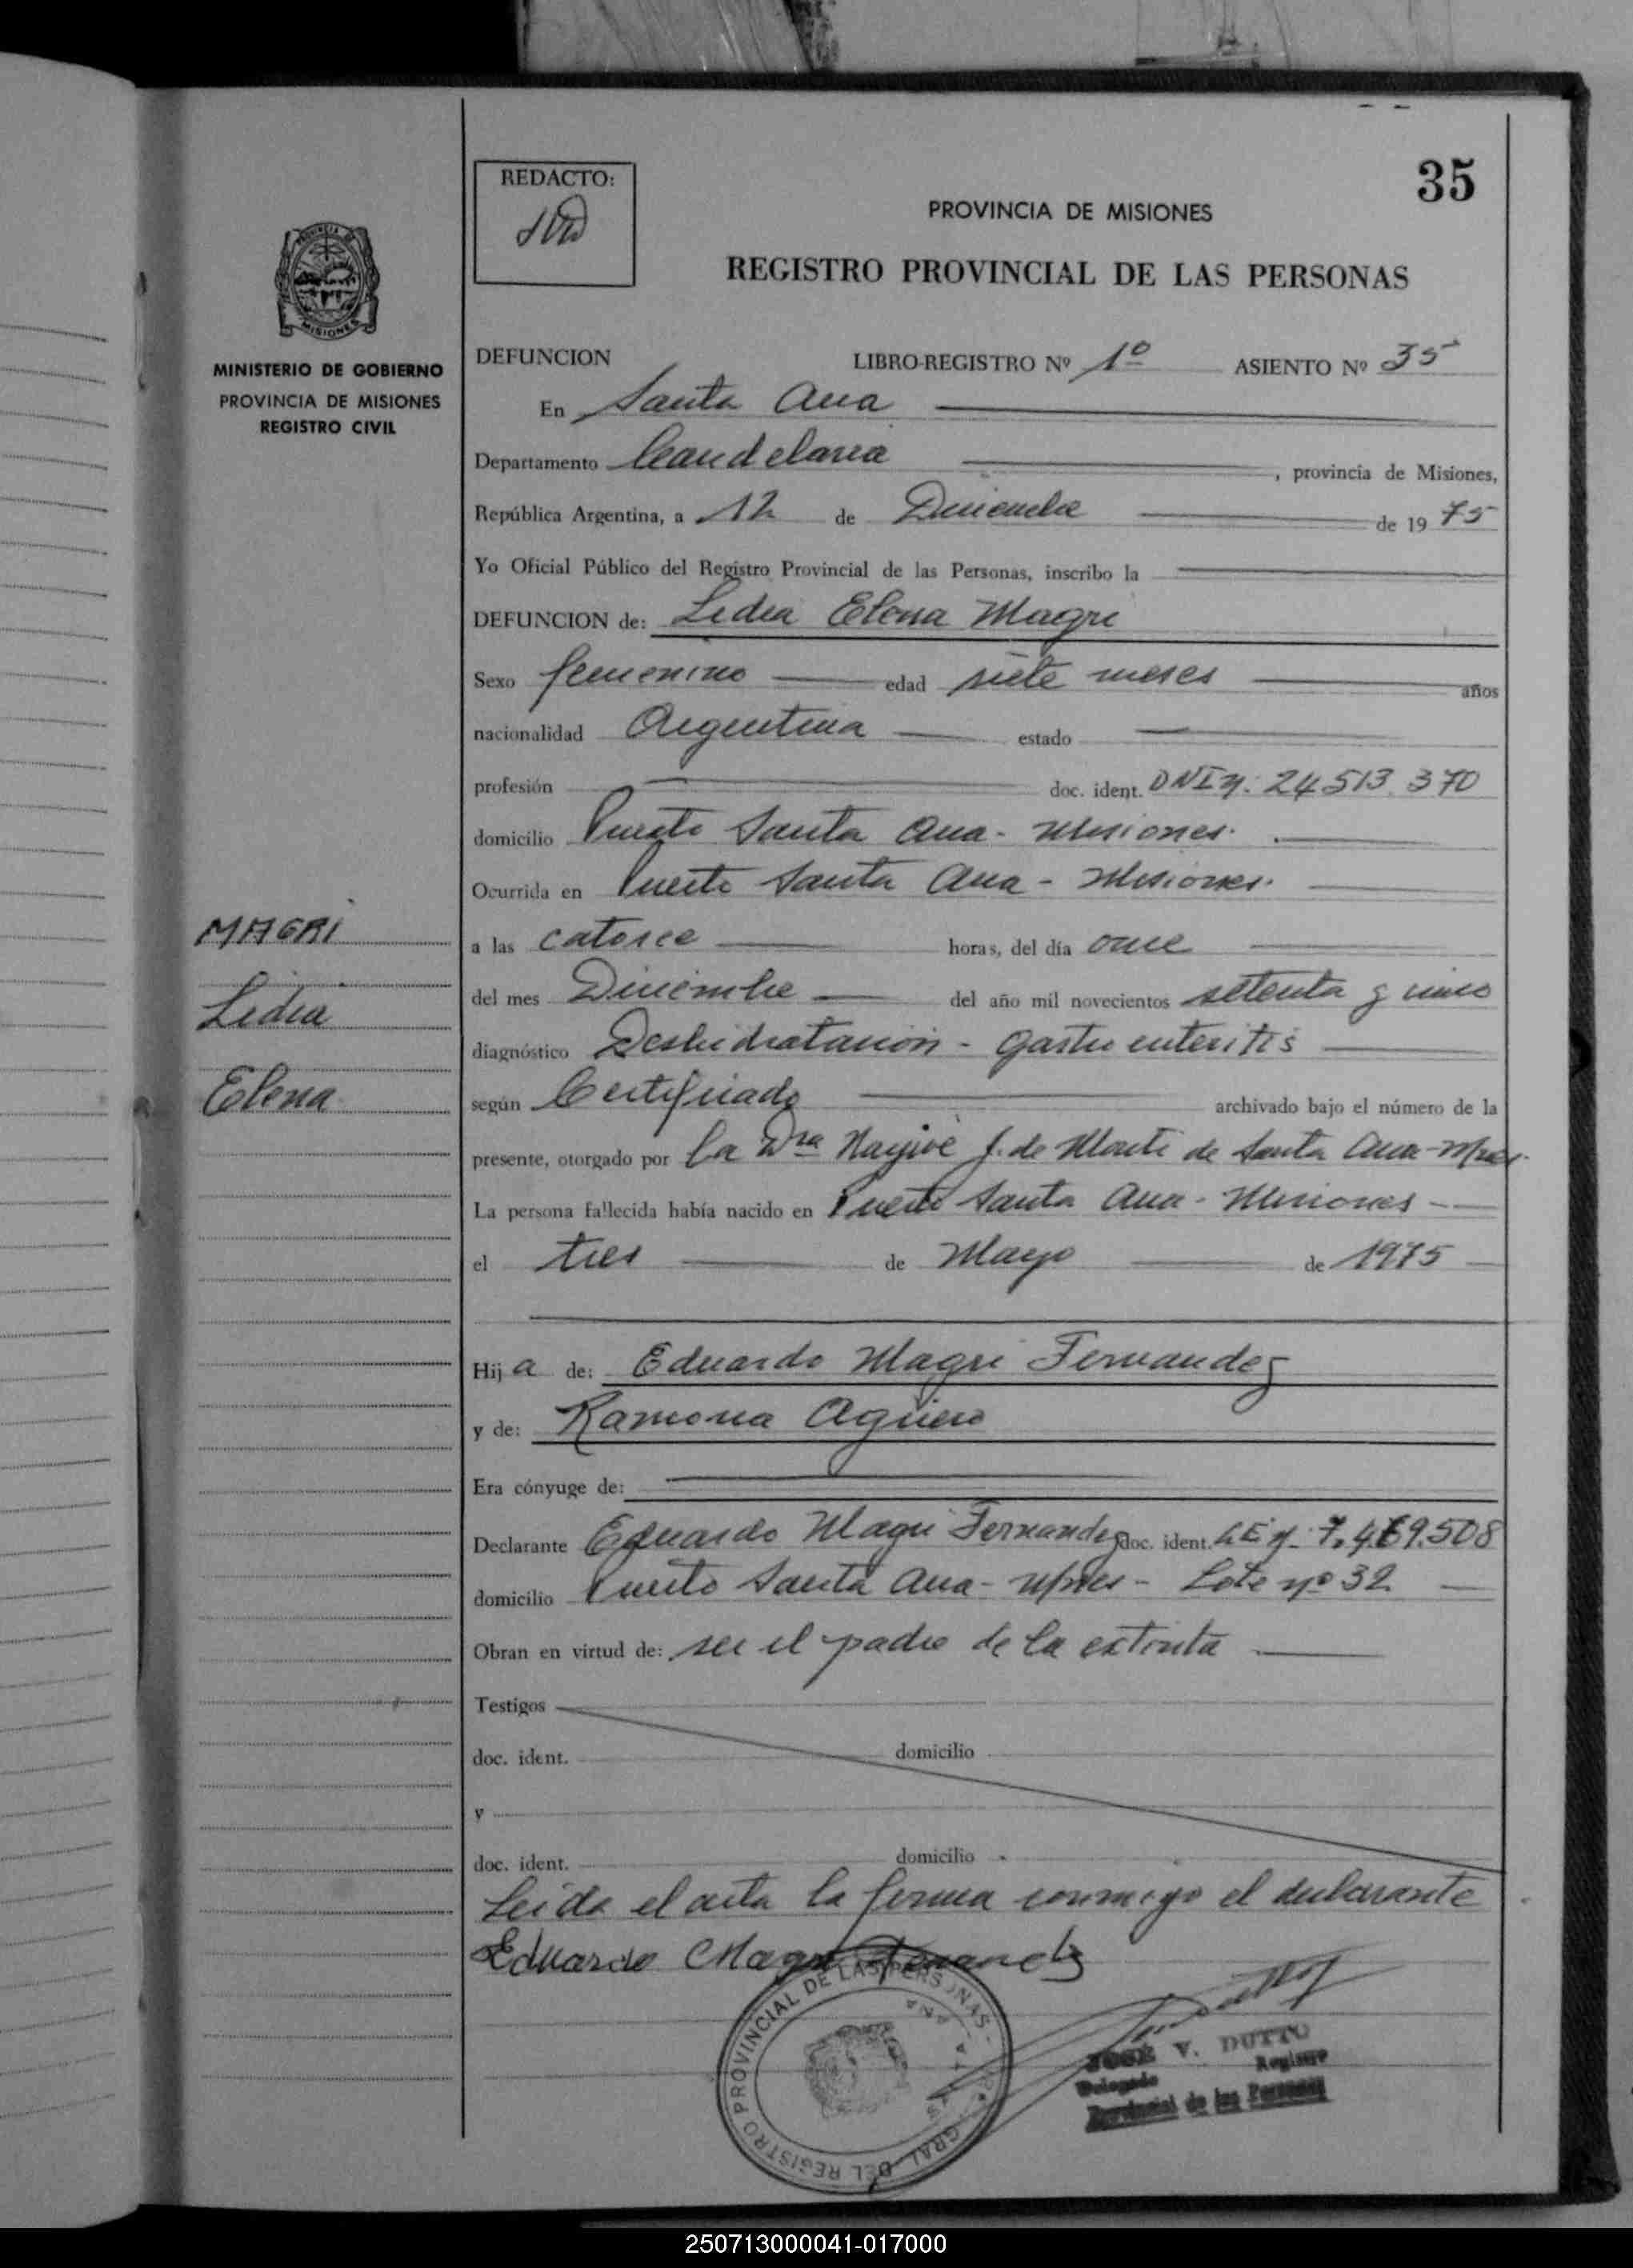 35
REDACTO:
PROVINCIA DE MISIONES
REGISTRO PROVINCIAL DE LAS PERSONAS
MISIONES
MINISTERIO DE GOBIERNO
PROVINCIA DE MISIONES
REGISTRO CIVIL
DEFUNCION LIBRO-REGISTRO Nº 1º ASIENTO Nº 35
En Santa Ana
Departamento Candelaria, provincia de Misiones,
República Argentina, a 12 de Diciembre de 1975
Yo Oficial Público del Registro Provincial de las Personas, inscribo la
DEFUNCION de: Lidia Elena Magri
Sexo femenino edad siete meses años
nacionalidad Argentina estado
profesión doc. ident. DNI Nº 24513.370
domicilio Puerto Santa Ana - Misiones.
Ocurrida en Puerto Santa Ana - Misiones.
MAGRI
Lidia
Elena
a las catorce horas, del día once
del mes Diciembre del año mil novecientos setenta y cinco
diagnóstico Deshidratación - gastro enteritis
según Certificado archivado bajo el número de la
presente, otorgado por la Dra J. de Monti de Santa Ana - Mnes.
La persona fallecida había nacido en Puerto Santa Ana - Misiones
el tres de Mayo de 1975
Hija de: Eduardo Magri Fernandez
y de: Ramona Agüero
Era cónyuge de:
Declarante Eduardo Magri Fernandez doc. ident. LE Nº 7.469.508
domicilio Puerto Santa Ana - Mnes - Lote nº 32
Obran en virtud de: ser el padre de la extinta
Testigos
doc. ident. domicilio
y
doc. ident. domicilio
Leida el acta la firma conmigo el declarante
Eduardo Magri Fernandz
GRAL DEL REGISTRO PROVINCIAL DE LAS PERSONAS
SANTA ANA
JOSE V. DUTTO
Delegado Registro
Provincial de las Personas
250713000041-017000